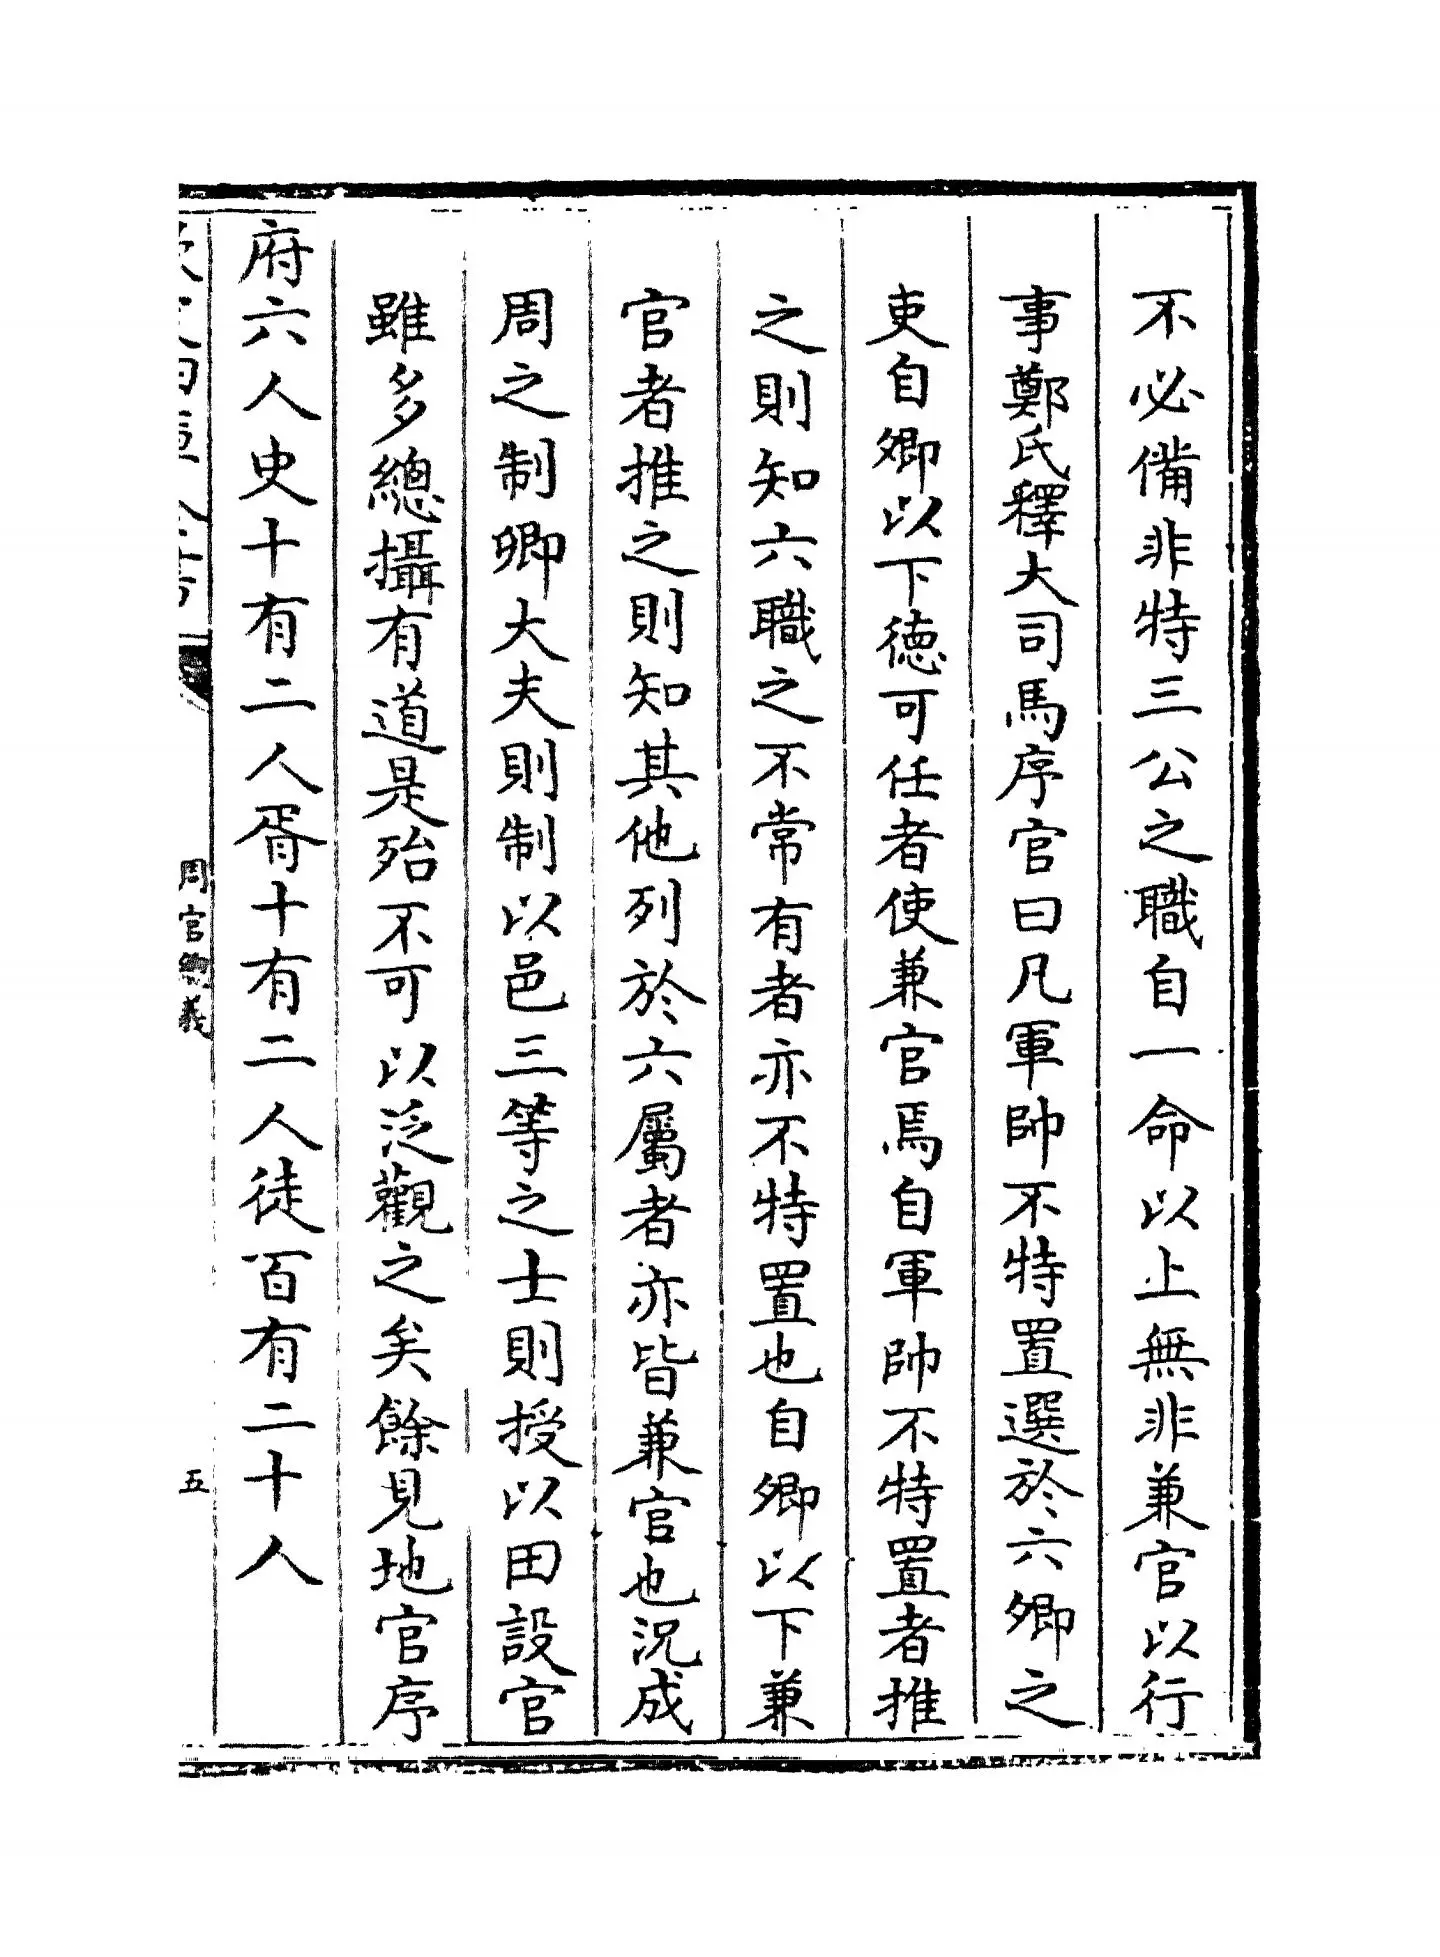 不必備非特三公之職自一命以上無非兼官以行
事鄭氏釋大司馬序官曰凡軍帥不特置選於六卿之
吏自卿以下徳可任者使兼官焉自軍帥不特置者推
之則知六職之不常有者亦不特置也自卿以下兼
官者推之則知其他列於六屬者亦皆兼官也況成
周之制卿大夫則制以邑三等之士則授以田設官
雖多總攝有道是殆不可以泛觀之矣餘見地官序
府六人史十有二人胥十有二人徒百有二十人
周官總義
五